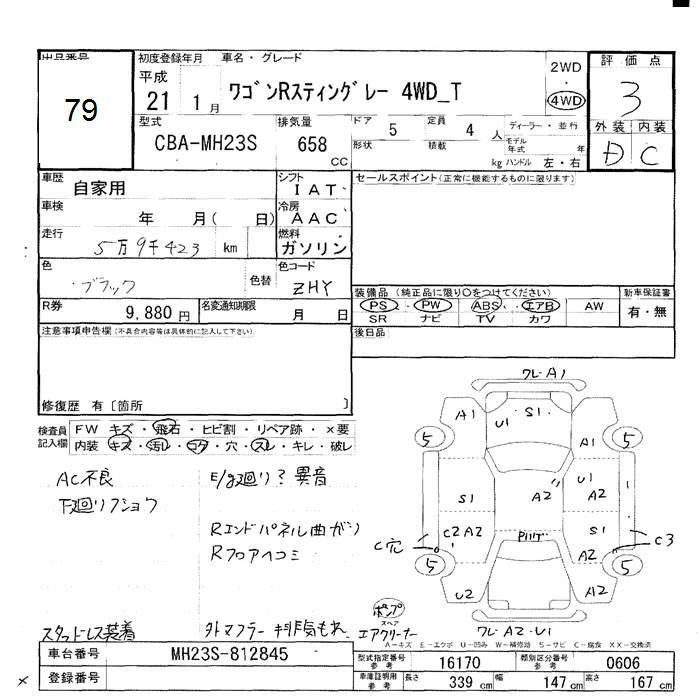 出品番号
79
初度登録年月 車名・グレード
平成
21 1月
ワゴンRスティングレー 4WD_T
2WD
・
4WD
評価点
3
外装 内装
D C
型式
CBA-MH23S
排気量
658
CC
ドア 5 定員 4 人
形状 積載 kg
ディーラー・並行
モデル年式 年
ハンドル 左・右
車歴 自家用
シフト IAT
車検 年 月( 日)
冷房 AAC
走行 5万9千423 km
燃料 ガソリン
色 ブラック 色替
色コード ZHY
R券 9,880円 名変通知期限 月 日
セールスポイント(正常に機能するものに限ります)
装備品(純正品に限り○をつけてください)
PS・PW ABS エアB AW
SR ナビ TV カワ
新車保証書
有・無
後日品
注意事項申告欄(不具合内容等は具体的に記入して下さい)
修復歴 有〔箇所 〕
検査員記入欄
FW キズ・飛石・ヒビ割・リペア跡・×要
内装・キズ・汚レ・コゲ・穴・スレ・キレ・破レ
AC不良
下廻りフショウ
E/g廻り?異音
Rエンドパネル曲がり
Rフロアヘコミ
スタッドレス装着
外マフラー 排気もれ
ポンプ
スペア
エアクリーナー
ワレ・A1
A1
U1
S1
A1
5
5
S1
A2
U1
A2
1
C穴
C2 A2
S1
A2
C3
5
5
U2
A2
ワレ・A2・U1
A-キズ E-エクボ U-凹み W-補修跡 S-サビ C-腐食 XX-交換済
車台番号 MH23S-812845
登録番号
型式指定番号 参考 16170
類別区分番号 参考 0606
車庫証明用 参考 長さ 339cm 幅 147cm 高さ 167cm